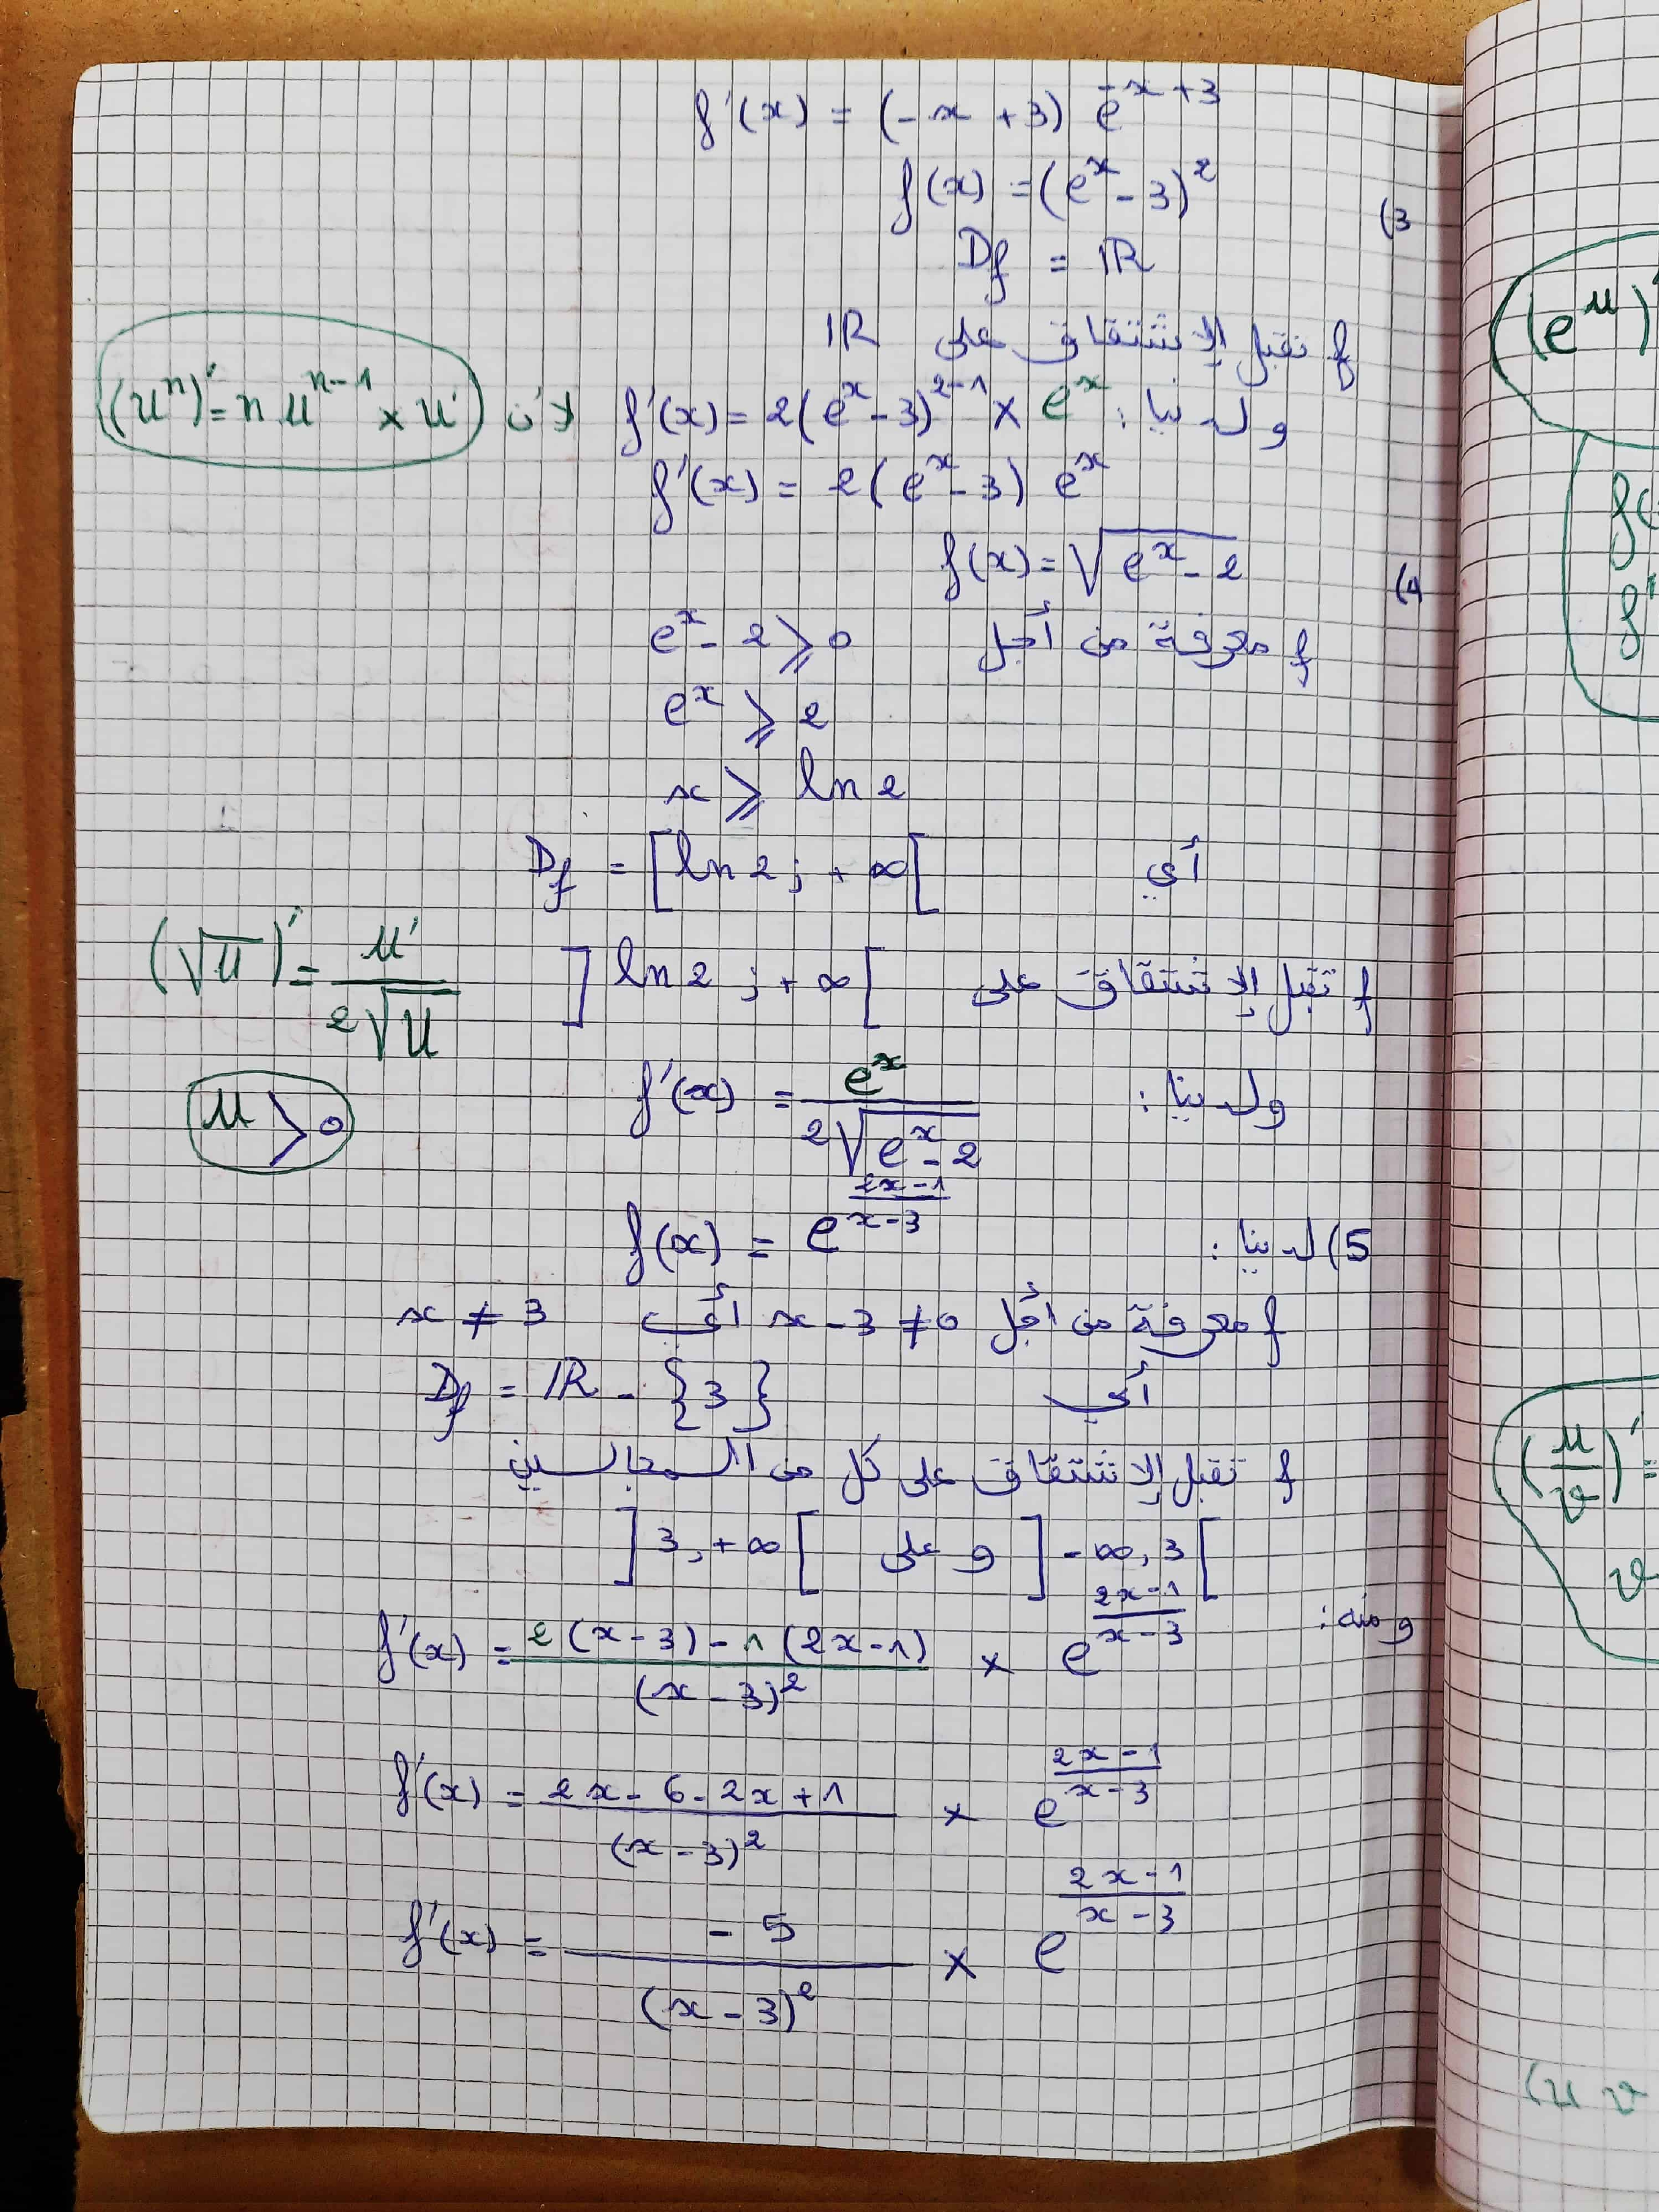 f'(x) = (-x + 3) e^{-x+3}
3) f(x) = (e^x - 3)^2
Df = IR
f تقبل الإشتقاق على IR
ولدينا : f'(x) = 2(e^x - 3)^{2-1} × e^x لأن (u^n)' = n u^{n-1} × u'
f'(x) = 2(e^x - 3) e^x
4) f(x) = √(e^x - 2)
f معرفة من أجل e^x - 2 ⩾ 0
e^x ⩾ 2
x ⩾ ln 2
أي Df = [ln 2 ; +∞[
f تقبل الإشتقاق على ]ln 2 ; +∞[ (√u)' = u' / 2√u
ولدينا : f'(x) = e^x / 2√(e^x - 2) u > 0
5) لدينا : f(x) = e^{(2x-1)/(x-3)}
f معرفة من أجل x - 3 ≠ 0 أي x ≠ 3
أي Df = IR - {3}
f تقبل الإشتقاق على كل من المجالين
]-∞, 3[ و على ]3, +∞[
ومنه : f'(x) = (2(x-3) - 1(2x-1)) / (x-3)^2 × e^{(2x-1)/(x-3)}
f'(x) = (2x - 6 - 2x + 1) / (x-3)^2 × e^{(2x-1)/(x-3)}
f'(x) = -5 / (x-3)^2 × e^{(2x-1)/(x-3)}
(e^u)'
f(
f'
(u/v)' =
v
(u v